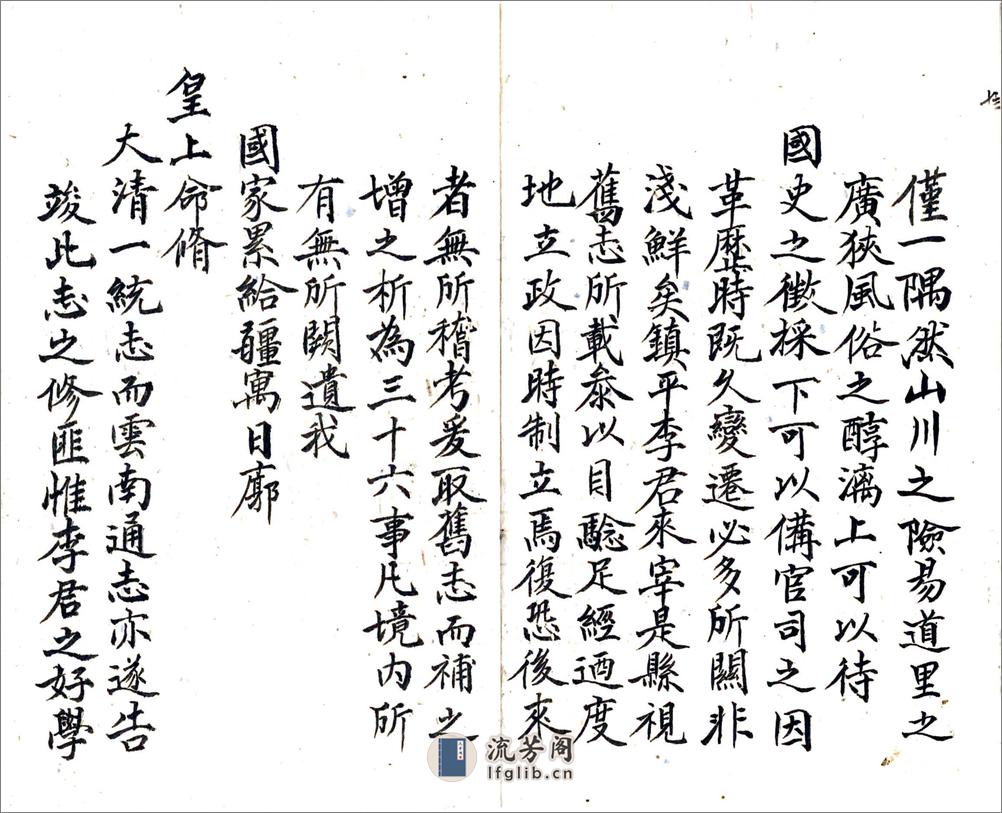 僅一隅然山川之險易道里之
廣狹風俗之醇漓上可以待
國史之徵採下可以備官司之因
革歷時既久變遷必多所關非
淺鮮矣鎮平李君來宰是縣視
舊志所載叅以目驗足經迺度
地立政因時制立焉復恐後來
者無所稽考爰取舊志而補之
增之析為三十六事凡境內所
有無所闕遺我
國家累給疆寓日廓
皇上命脩
大清一統志而雲南通志亦遂告
竣此志之修匪惟李君之好學
流芳阁
lfglib.cn